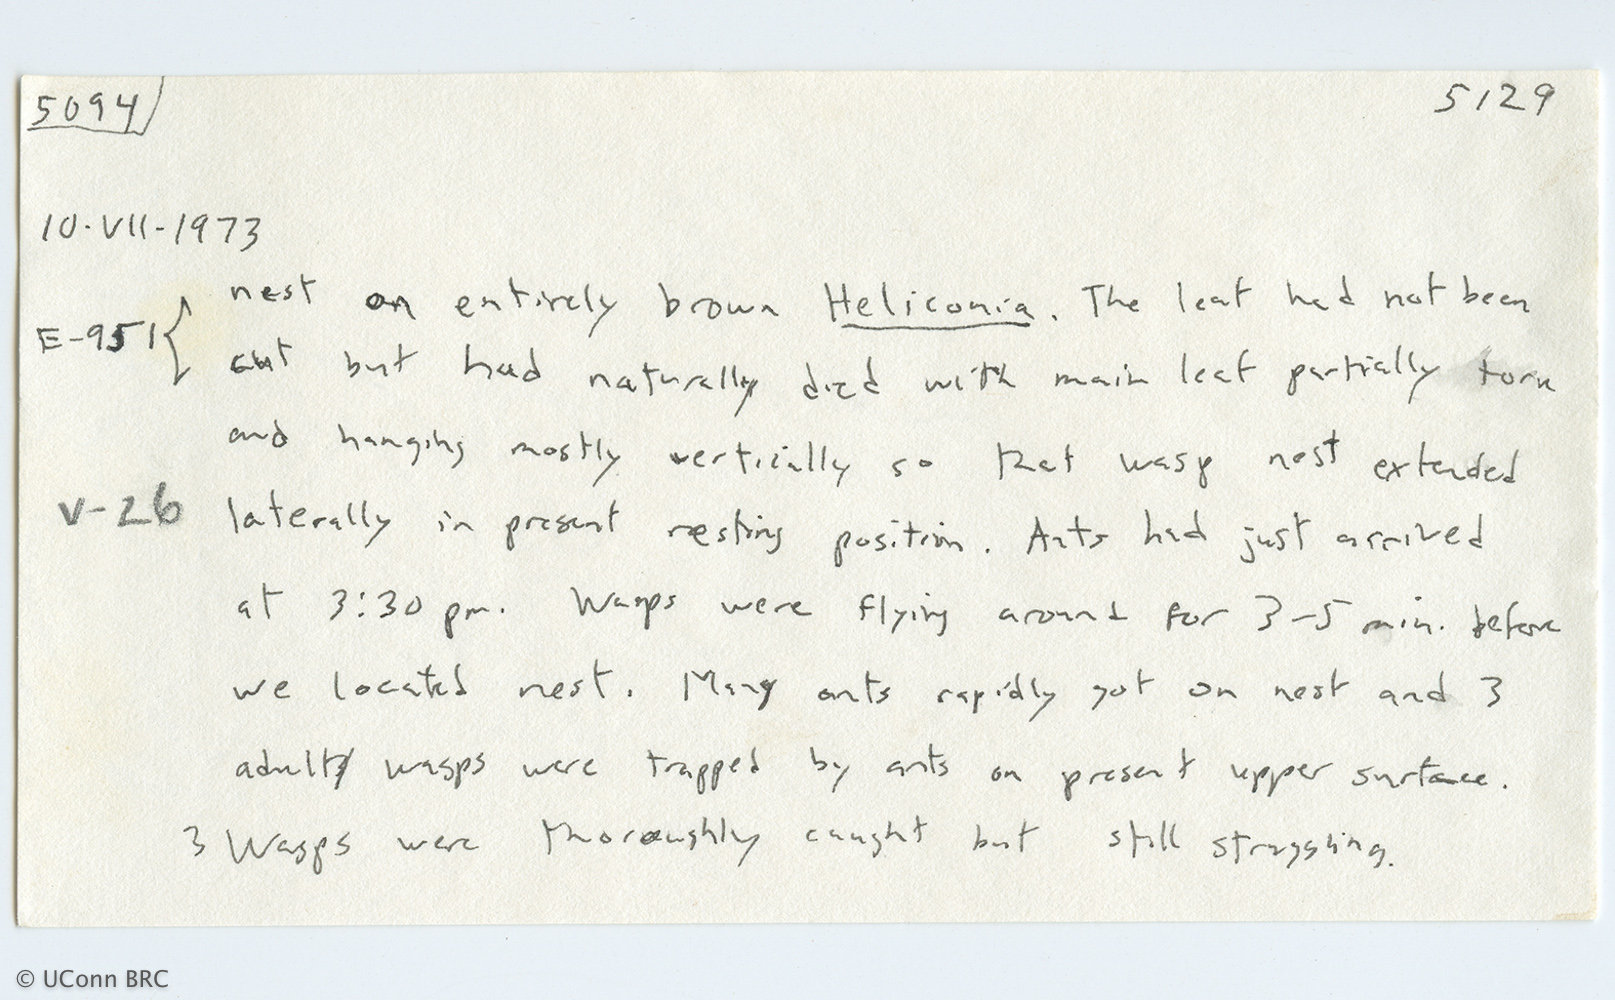 5094 5129
10-VII-1973
nest on entirely brown Heliconia. The leaf had not been
E-951 { cut but had naturally died with main leaf partially torn
and hanging mostly vertically so that wasp nest extended
V-26 laterally in present resting position. Ants had just arrived
at 3:30 pm. Wasps were flying around for 3-5 min. before
we located nest. Many ants rapidly got on nest and 3
adult wasps were trapped by ants on present upper surface.
3 Wasps were thoroughly caught but still struggling.
© UConn BRC